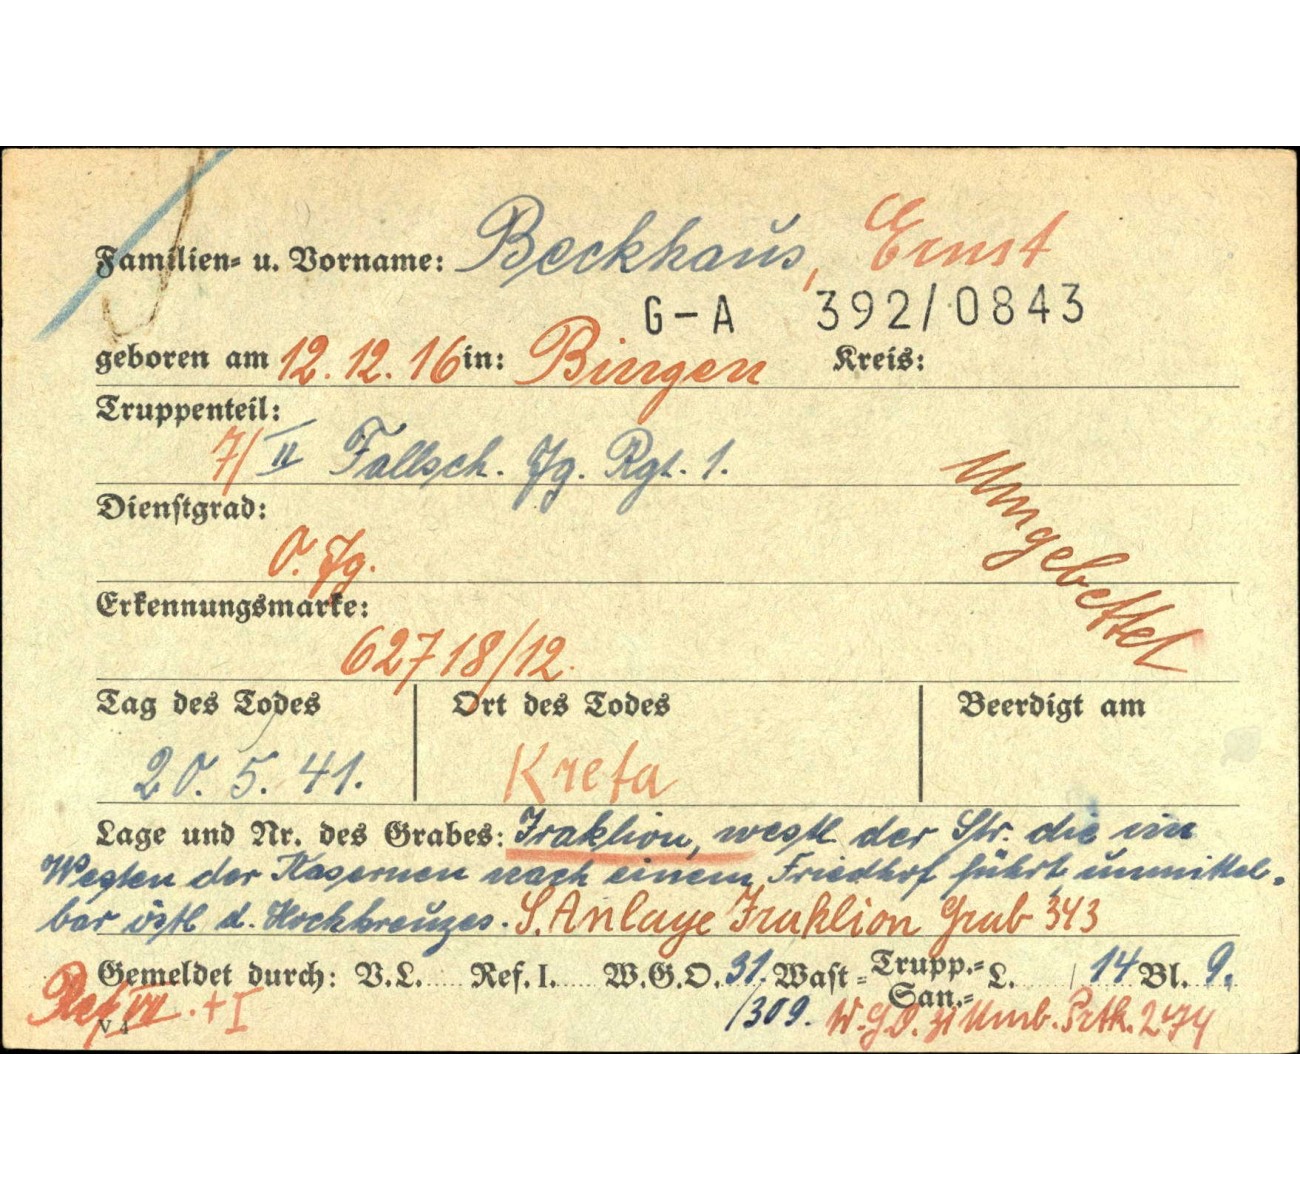 Familien- u. Vorname: Beckhaus, Ernst
G-A 392/0843
geboren am 12.12.16 in: Bingen Kreis:
Truppenteil:
7/ II Fallsch. Jg. Rgt. 1.
Dienstgrad:
O. Jg.
Umgebettet
Erkennungsmarke:
62718/12
Tag des Todes Ort des Todes Beerdigt am
20. 5. 41. Kreta
Lage und Nr. des Grabes: Iraklion, westl. der Str. die im
Westen der Kasernen nach einem Friedhof führt, unmittel-
bar östl. d. Hochkreuzes. S. Anlage Iraklion Grab 343
Gemeldet durch: V.L. Ref. I. W.G.O. 31. Wast- Trupp.- San.- L. / 14 Bl. 9.
Ref VII. + I /309. W.G.O. 31 Umb. Prtk. 274
V 4